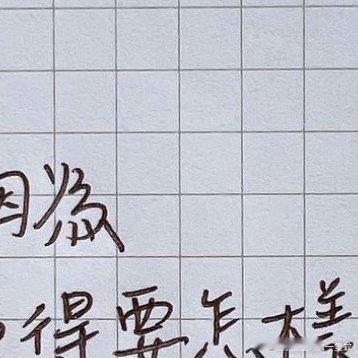 因為
得要怎樣